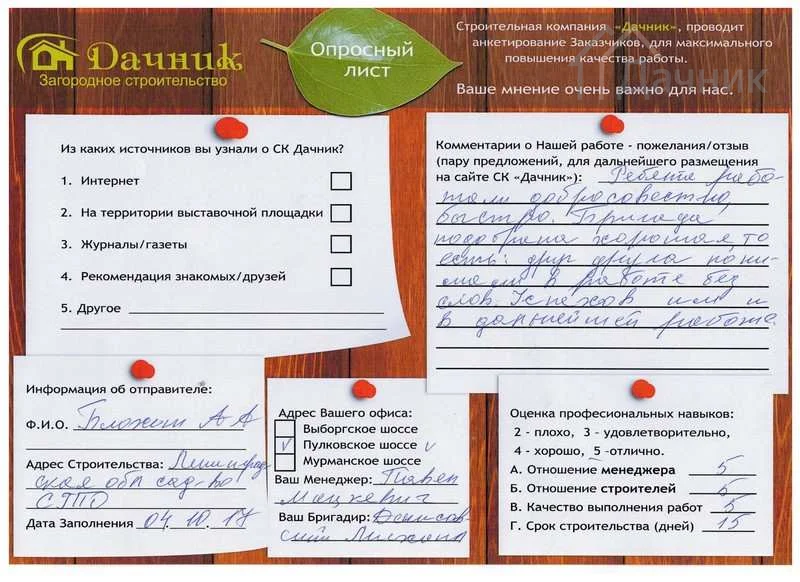 Дачник
Загородное строительство
Опросный
лист
Строительная компания «Дачник», проводит
анкетирование Заказчиков, для максимального
повышения качества работы.
Ваше мнение очень важно для нас.
Дачник
Из каких источников вы узнали о СК Дачник?
1. Интернет
2. На территории выставочной площадки
3. Журналы/газеты
4. Рекомендация знакомых/друзей
5. Другое
Комментарии о Нашей работе - пожелания/отзыв
(пару предложений, для дальнейшего размещения
на сайте СК «Дачник»): Ребята рабо-
тали добросовестно,
быстро. Бригада
подобрана хорошая, то
есть: друг друга пони-
мали в работе без
слов. Успехов им и
в дальнейшей работе.
Информация об отправителе:
Ф.И.О. А А
Адрес Строительства: Ленинград
ская обл сад-во
Дата Заполнения 04.10.17
Адрес Вашего офиса:
Выборгское шоссе
Пулковское шоссе
Мурманское шоссе
Ваш Менеджер: Павел
Мацкевич
Ваш Бригадир: Денисов-
ский
Оценка професиональных навыков:
2 - плохо, 3 - удовлетворительно,
4 - хорошо, 5 -отлично.
А. Отношение менеджера 5
Б. Отношение строителей 5
В. Качество выполнения работ 5
Г. Срок строительства (дней) 15